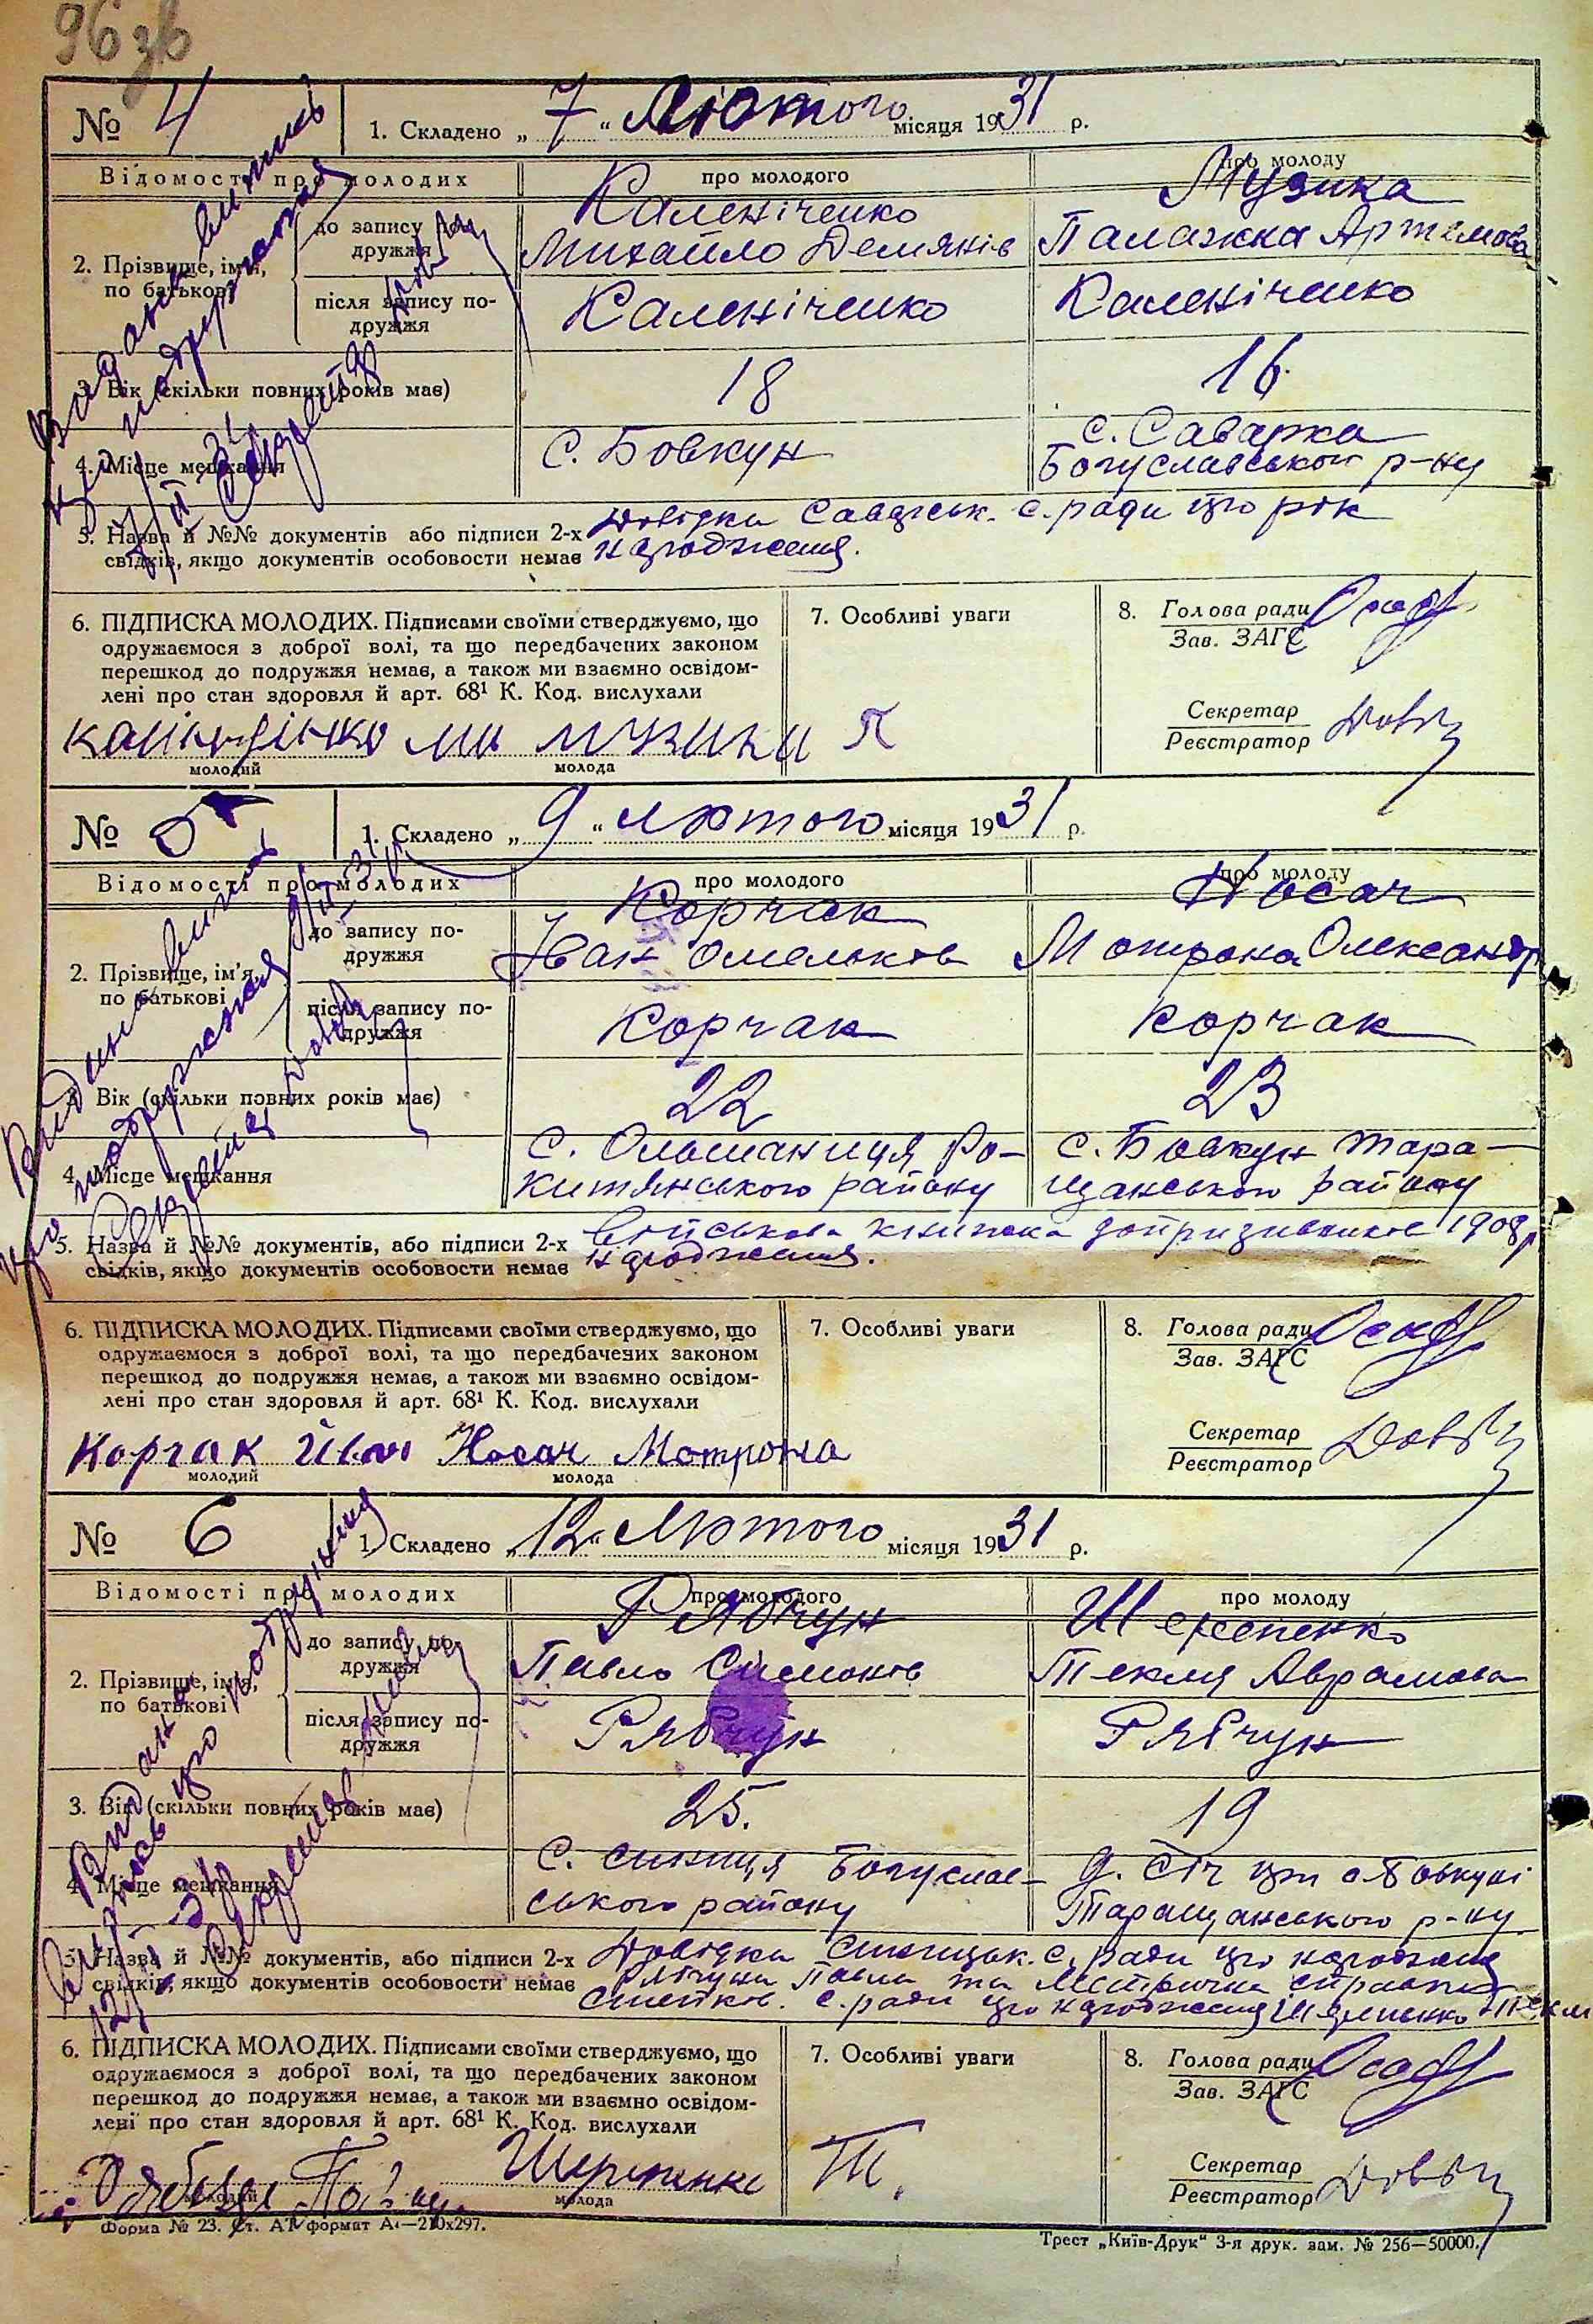 96 зв
№ 4 1. Складено „ 7 “ Лютого місяця 1931 р.
Відомості про молодих про молодого про молоду
2. Прізвище, ім'я, по батькові
до запису по-
дружжя
Каленіченко
Михайло Демянів
Музика
Палажка Артемова
після запису по-
дружжя
Каленіченко
Каленіченко
3. Вік (скільки повних років має) 18 16
4. Місце мешкання с. Бовкун
с. Саварка
Богуславського р-ну
5. Назва й №№ документів або підписи 2-х
свідків, якщо документів особовости немає
Довідка Саварськ. с. ради про рік
народження.
Видана випись
про подружжя
7/II 31
Секретар
6. ПІДПИСКА МОЛОДИХ. Підписами своїми стверджуємо, що
одружаємося з доброї волі, та що передбачених законом
перешкод до подружжя немає, а також ми взаємно освідом-
лені про стан здоровля й арт. 68¹ К. Код. вислухали
музика П
молодий молода
7. Особливі уваги
8. Голова ради
Зав. ЗАГС
Секретар
Реєстратор
№ 5 1. Складено „ 9 “ лютого місяця 1931 р.
Відомості про молодих про молодого про молоду
2. Прізвище, ім'я,
по батькові
до запису по-
дружжя
Корчак
Іван Омельков
Носач
Мотрона Олександр
після запису по-
дружжя
Корчак
Корчак
3. Вік (скільки повних років має) 22 23
4. Місце мешкання
с. Ольшаниця Ро-
китянського району
с. Бовкун Тара-
щанського району
5. Назва й №№ документів, або підписи 2-х
свідків, якщо документів особовости немає
Військова книжка допризивників 1908 р
народження.
Видана випись
про подружжя 9/II-31 р.
6. ПІДПИСКА МОЛОДИХ. Підписами своїми стверджуємо, що
одружаємося з доброї волі, та що передбачених законом
перешкод до подружжя немає, а також ми взаємно освідом-
лені про стан здоровля й арт. 68¹ К. Код. вислухали
Корчак Йван Носач Мотрона
молодий молода
7. Особливі уваги
8. Голова ради
Зав. ЗАГС
Секретар
Реєстратор
№ 6 1. Складено „ 12 “ Лютого місяця 1931 р.
Відомості про молодих про молодого про молоду
2. Прізвище, ім'я,
по батькові
до запису по-
дружжя
Рябчун
Павло Симонів
Шерепенко
Текля Аврамова
після запису по-
дружжя
Рябчун
Рябчун
3. Вік (скільки повних років має) 25. 19
4. Місце мешкання
с. Синиця Богуслав-
ського району
д. Січ при с Бовкуні
Таращанського р-ну
5. Назва й №№ документів, або підписи 2-х
свідків, якщо документів особовости немає
Довідка Синицьк. с. ради про народження
Рябчуна Павла та Метрична справка
с. ради про народження
Видана
випись про подружжя
6. ПІДПИСКА МОЛОДИХ. Підписами своїми стверджуємо, що
одружаємося з доброї волі, та що передбачених законом
перешкод до подружжя немає, а також ми взаємно освідом-
лені про стан здоровля й арт. 68¹ К. Код. вислухали
Шерепенко Т.
молодий молода
7. Особливі уваги
8. Голова ради
Зав. ЗАГС
Секретар
Реєстратор
Форма № 23. Ст. А1 формат А4—210х297.
Трест „Київ-Друк“ 3-я друк. зам. № 256—50000.